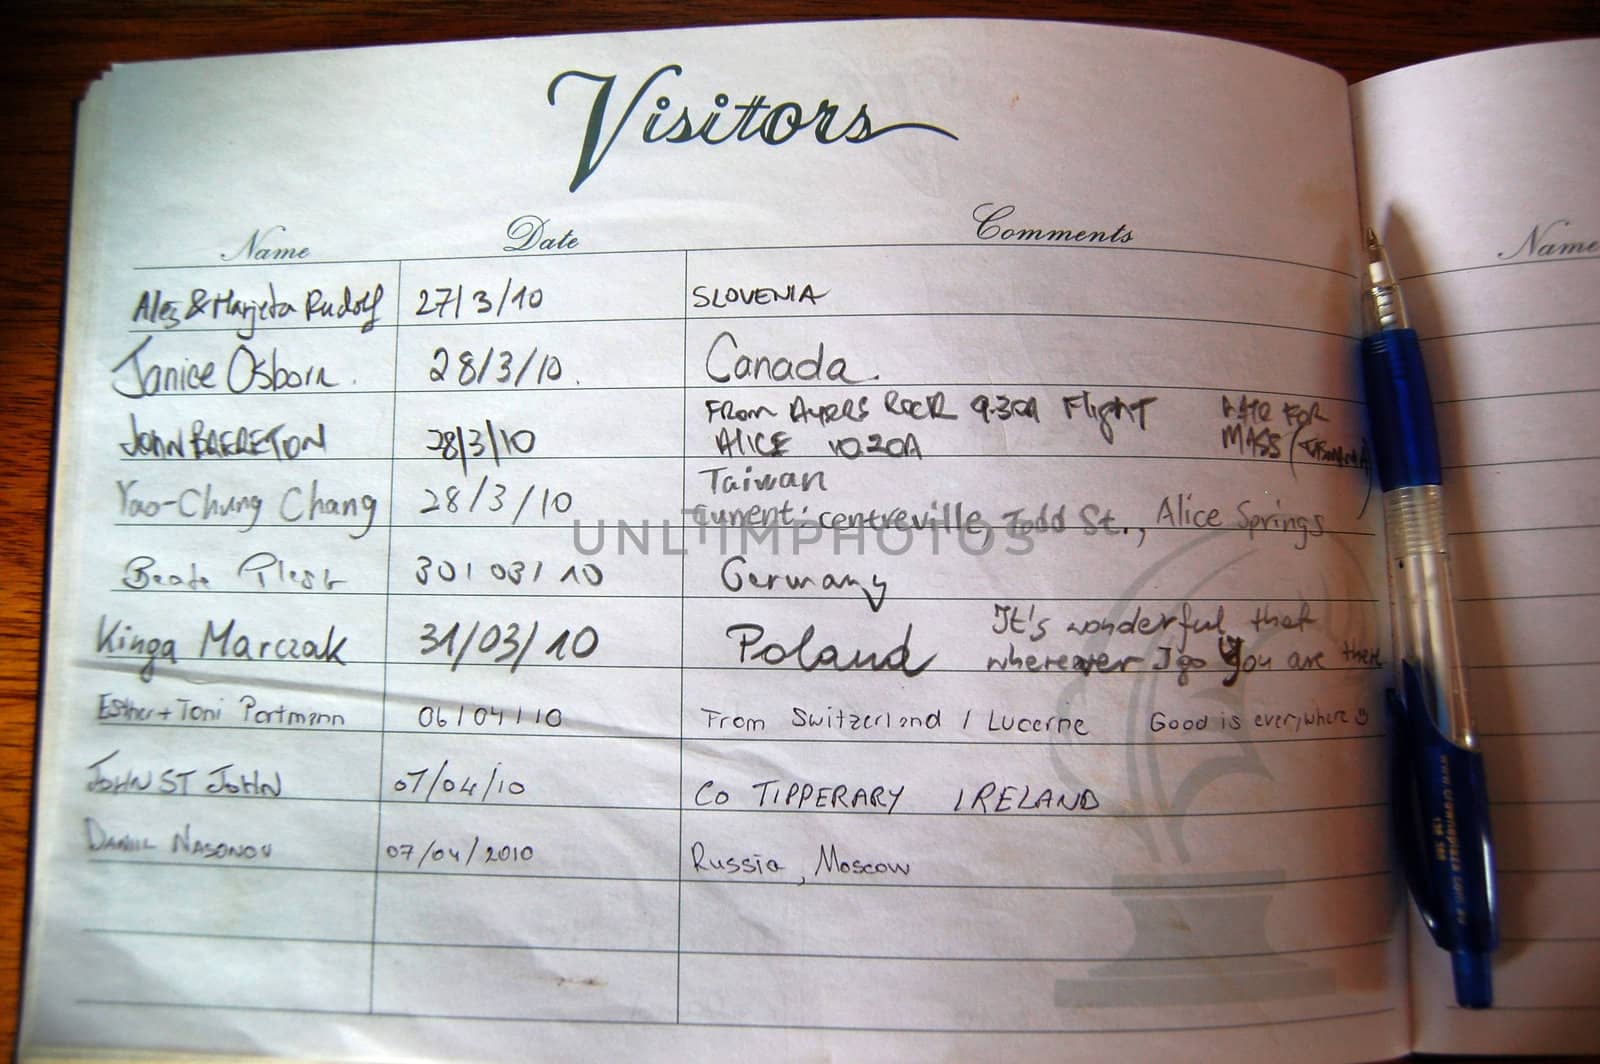 Visitors
Name Date Comments Name
Aleš & Marjeta Rudolf 27/3/10 SLOVENIA
Janice Osborn. 28/3/10. Canada.
JOHN BRERETON 28/3/10 FROM AYERS ROCK 9.30A Flight LATE FOR
ALICE 10.20A MASS (TASMANIA)
Yao-Chung Chang 28/3/10 Taiwan
Current: centreville, Todd St., Alice Springs
Beate 30/03/10 Germany
Kinga Marczak 31/03/10 Poland It's wonderful that
wherever I go You are there
Esther + Toni Portmann 06/04/10 From Switzerland / Lucerne Good is everywhere
JOHN ST JOHN 07/04/10 CO TIPPERARY IRELAND
DANIIL NASONOV 07/04/2010 Russia, Moscow
UNLTIMPHOTOS